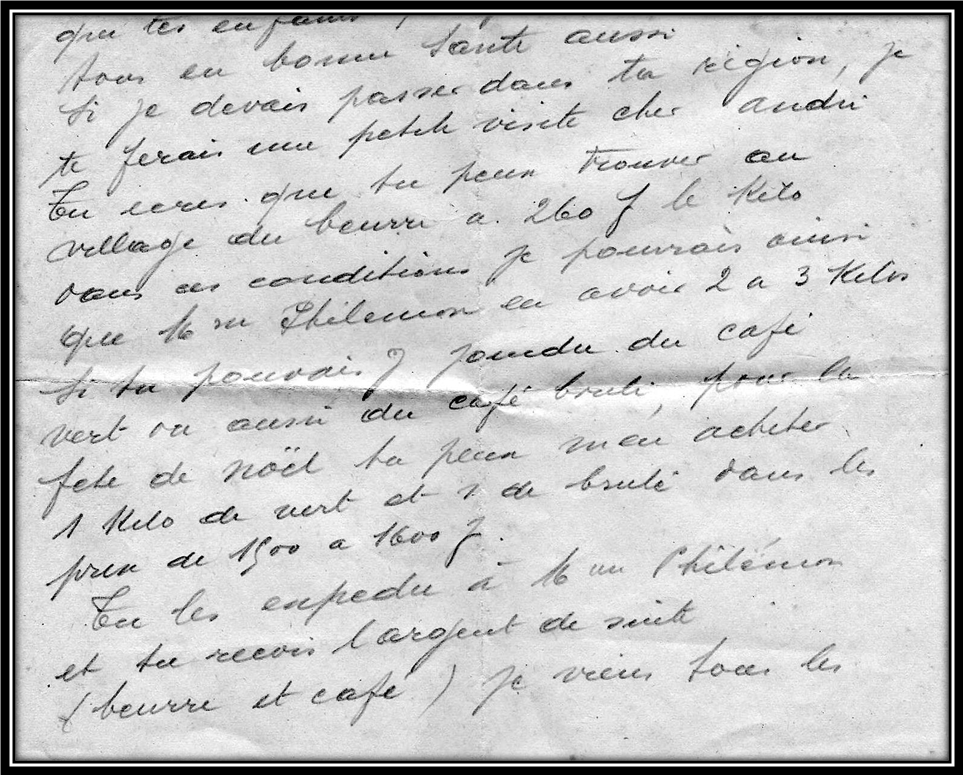 que tes enfants,
tous en bonne Santé aussi
Si je devais passer dans ta région, je
te ferais une petite visite cher andré
Tu ecris que tu peux trouver au
village du beurre a 260 f le Kilo
dans ces conditions je pourrais ainsi
que Mm Philemon en avoir 2 a 3 Kilos
Si tu pouvais y joindre du café
vert ou aussi du café brulé, pour la
fete de noël tu peux m en acheter
1 Kilo de vert et 1 de brulé dans les
prix de 1500 a 1600 f.
Tu les expedie à Mm Philémon
et tu recois l argent de suite
(beurre et café) je viens tous les